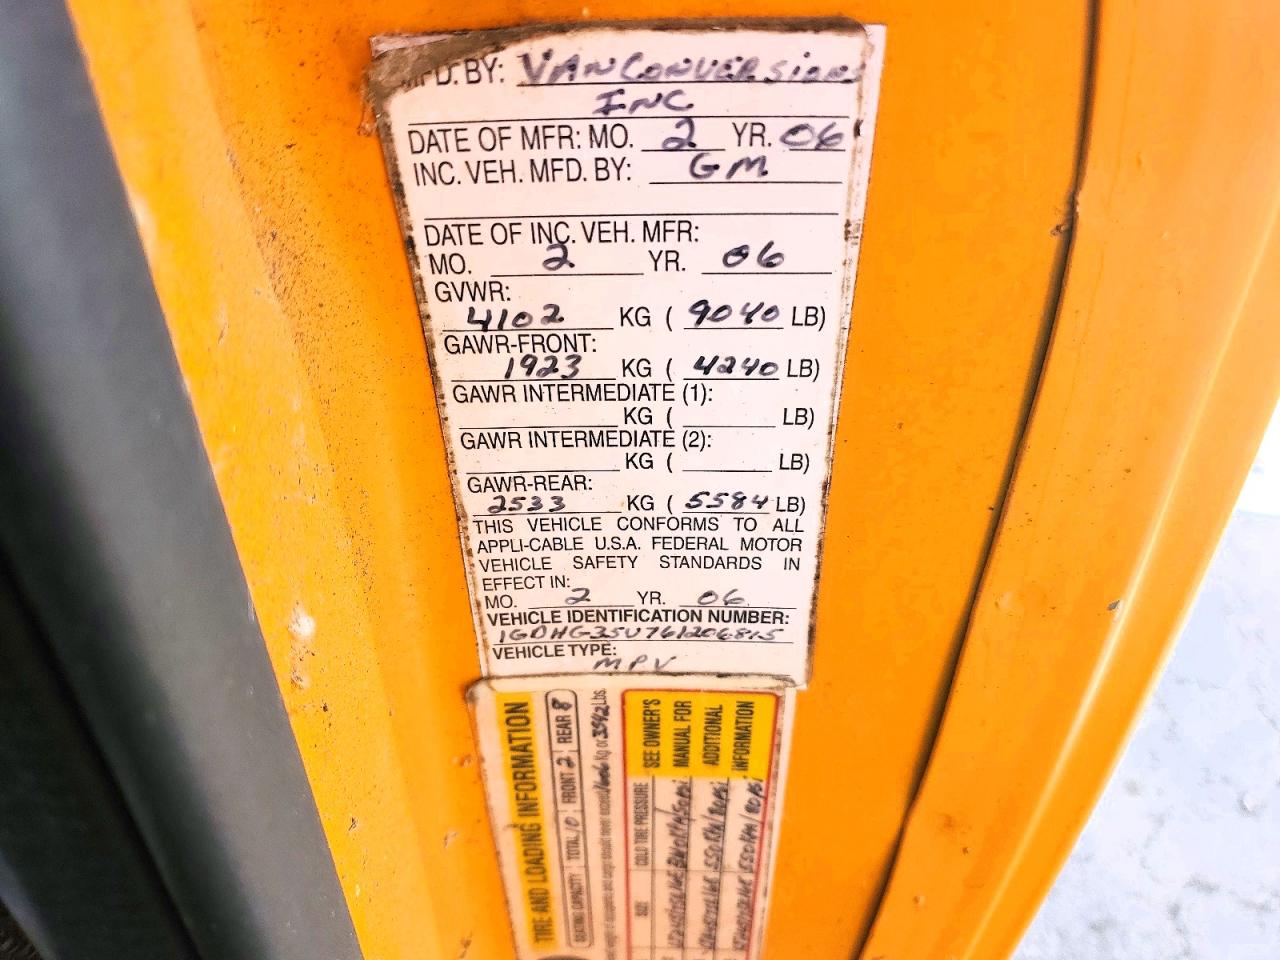 MFD. BY: VAN CONVERSIONS
INC
DATE OF MFR: MO. 2 YR. 06
INC. VEH. MFD. BY: GM
DATE OF INC. VEH. MFR:
MO. 2 YR. 06
GVWR:
4102 KG ( 9040 LB)
GAWR-FRONT:
1923 KG ( 4240 LB)
GAWR INTERMEDIATE (1):
KG ( LB)
GAWR INTERMEDIATE (2):
KG ( LB)
GAWR-REAR:
2533 KG ( 5584 LB)
THIS VEHICLE CONFORMS TO ALL
APPLI-CABLE U.S.A. FEDERAL MOTOR
VEHICLE SAFETY STANDARDS IN
EFFECT IN:
MO. 2 YR. 06
VEHICLE IDENTIFICATION NUMBER:
1GDHG35U761206815
VEHICLE TYPE:
MPV
TIRE AND LOADING INFORMATION
SEATING CAPACITY TOTAL 10 FRONT 2 REAR 8
weight of occupants and cargo should never exceed 1606 Kg or 3542 Lbs.
SIZE COLD TIRE PRESSURE
SEE OWNER'S
MANUAL FOR
ADDITIONAL
INFORMATION
550 KPA / 80 PSI
550 KPA / 80 PSI